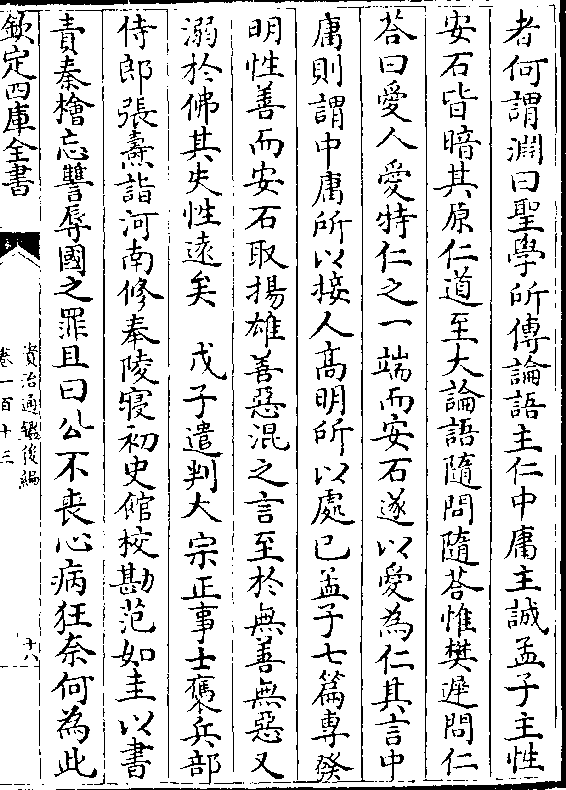 者何謂淵曰聖學所傳論語主仁中庸主誠孟子主性
安石皆暗其原仁道至大論語隨問隨荅惟樊遲問仁
荅曰愛人愛特仁之一端而安石遂以愛為仁其言中
庸則謂中庸所以接人髙明所以處已孟子七篇專發
明性善而安石取揚雄善惡混之言至於無善無惡又
溺於佛其失性遠矣　戊子遣判大宗正事士㒟兵部
侍郎張燾詣河南修奉陵寢初史館校勘范如圭以書
責秦檜忘讐辱國之罪且曰公不喪心病狂奈何為此
欽定四庫全書
資治通鑑後編
卷一百十三
十八